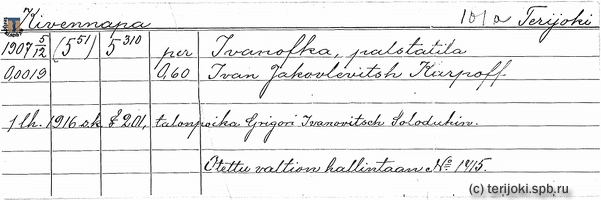 Kivennapa 101a Terijoki
1907 5/12 (5 51) 5 310 per Ivanofka, palstatila
0,0019 0,60 Ivan Jakovlevitsh Karpoff
1 lk. 1916 s.k. § 201, talonpoika Grigori Ivanovitsch Soloduhin.
Otettu valtion hallintaan No 1415.
(c) terijoki.spb.ru